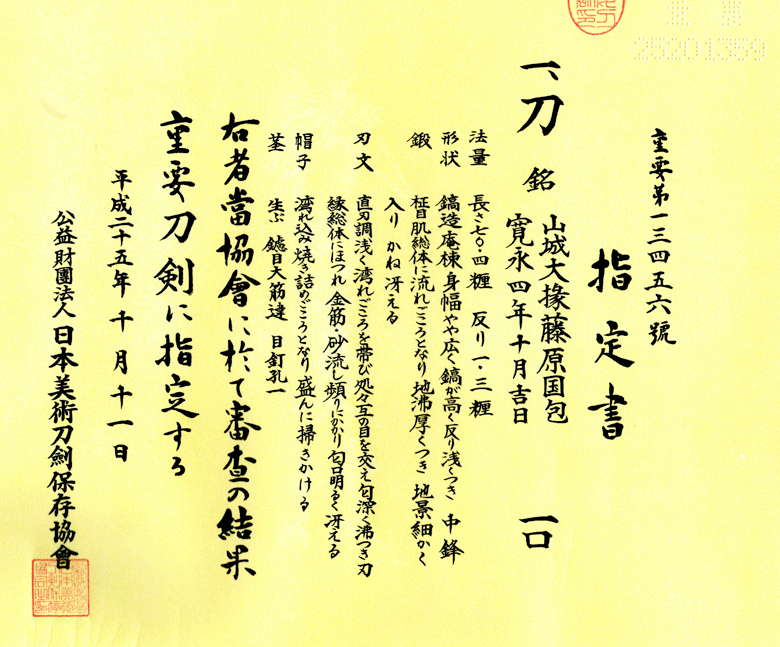 重要第一三四五六號
指定書
一、刀 銘 山城大掾藤原国包 一口
寛永四年十月吉日
法量 長さ七〇・四糎 反り一・三糎
形状 鎬造 庵棟 身幅やや広く 鎬が高く 反り浅くつき 中鋒
鍛 柾目肌総体に流れごころとなり 地沸厚くつき 地景細かく
入り かね冴える
刃文 直刃調浅く湾れごころを帯び 処々互の目を交え 匂深く沸つき 刃
縁総体にほつれ 金筋・砂流し頻りにかかり 匂口明るく冴える
帽子 湾れ込み焼き詰めごころとなり 盛んに掃きかける
茎 生ぶ 鑢目大筋違 目釘孔一
右者當協會に於て審査の結果
重要刀剣に指定する
平成二十五年十月十一日
公益財團法人日本美術刀劍保存協會
25201359